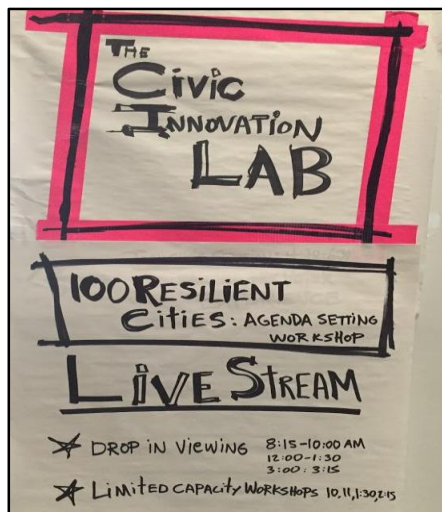 THE
CiViC
INNOVATION
LAB
100 RESiLiENT
CiTiES: AGENDA SETTING
WORKSHOP
LiVE STREAM
DROP iN ViEWiNG 8:15-10:00 AM
12:00-1:30
3:00:3:15
LiMiTED CAPACiTY WORKSHOPS 10,11,1:30,2:15